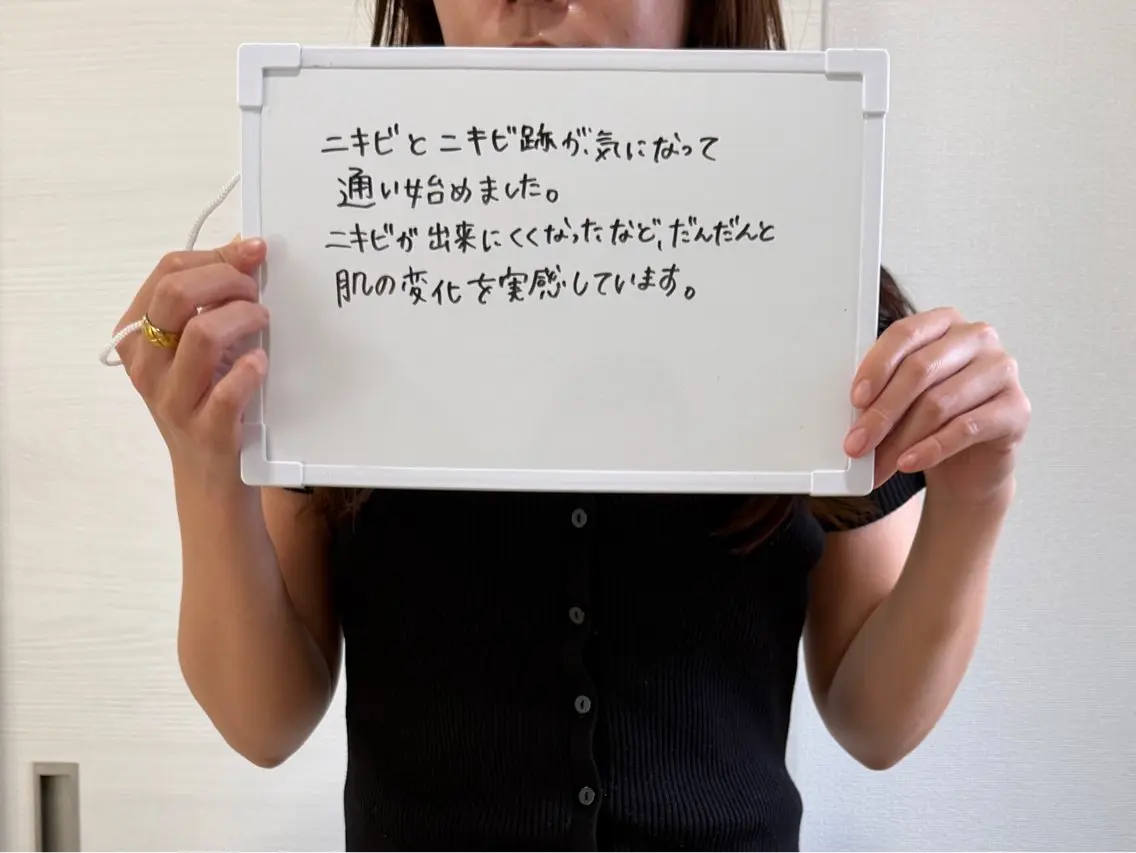 ニキビとニキビ跡が気になって
通い始めました。
ニキビが出来にくくなったなど、だんだんと
肌の変化を実感しています。